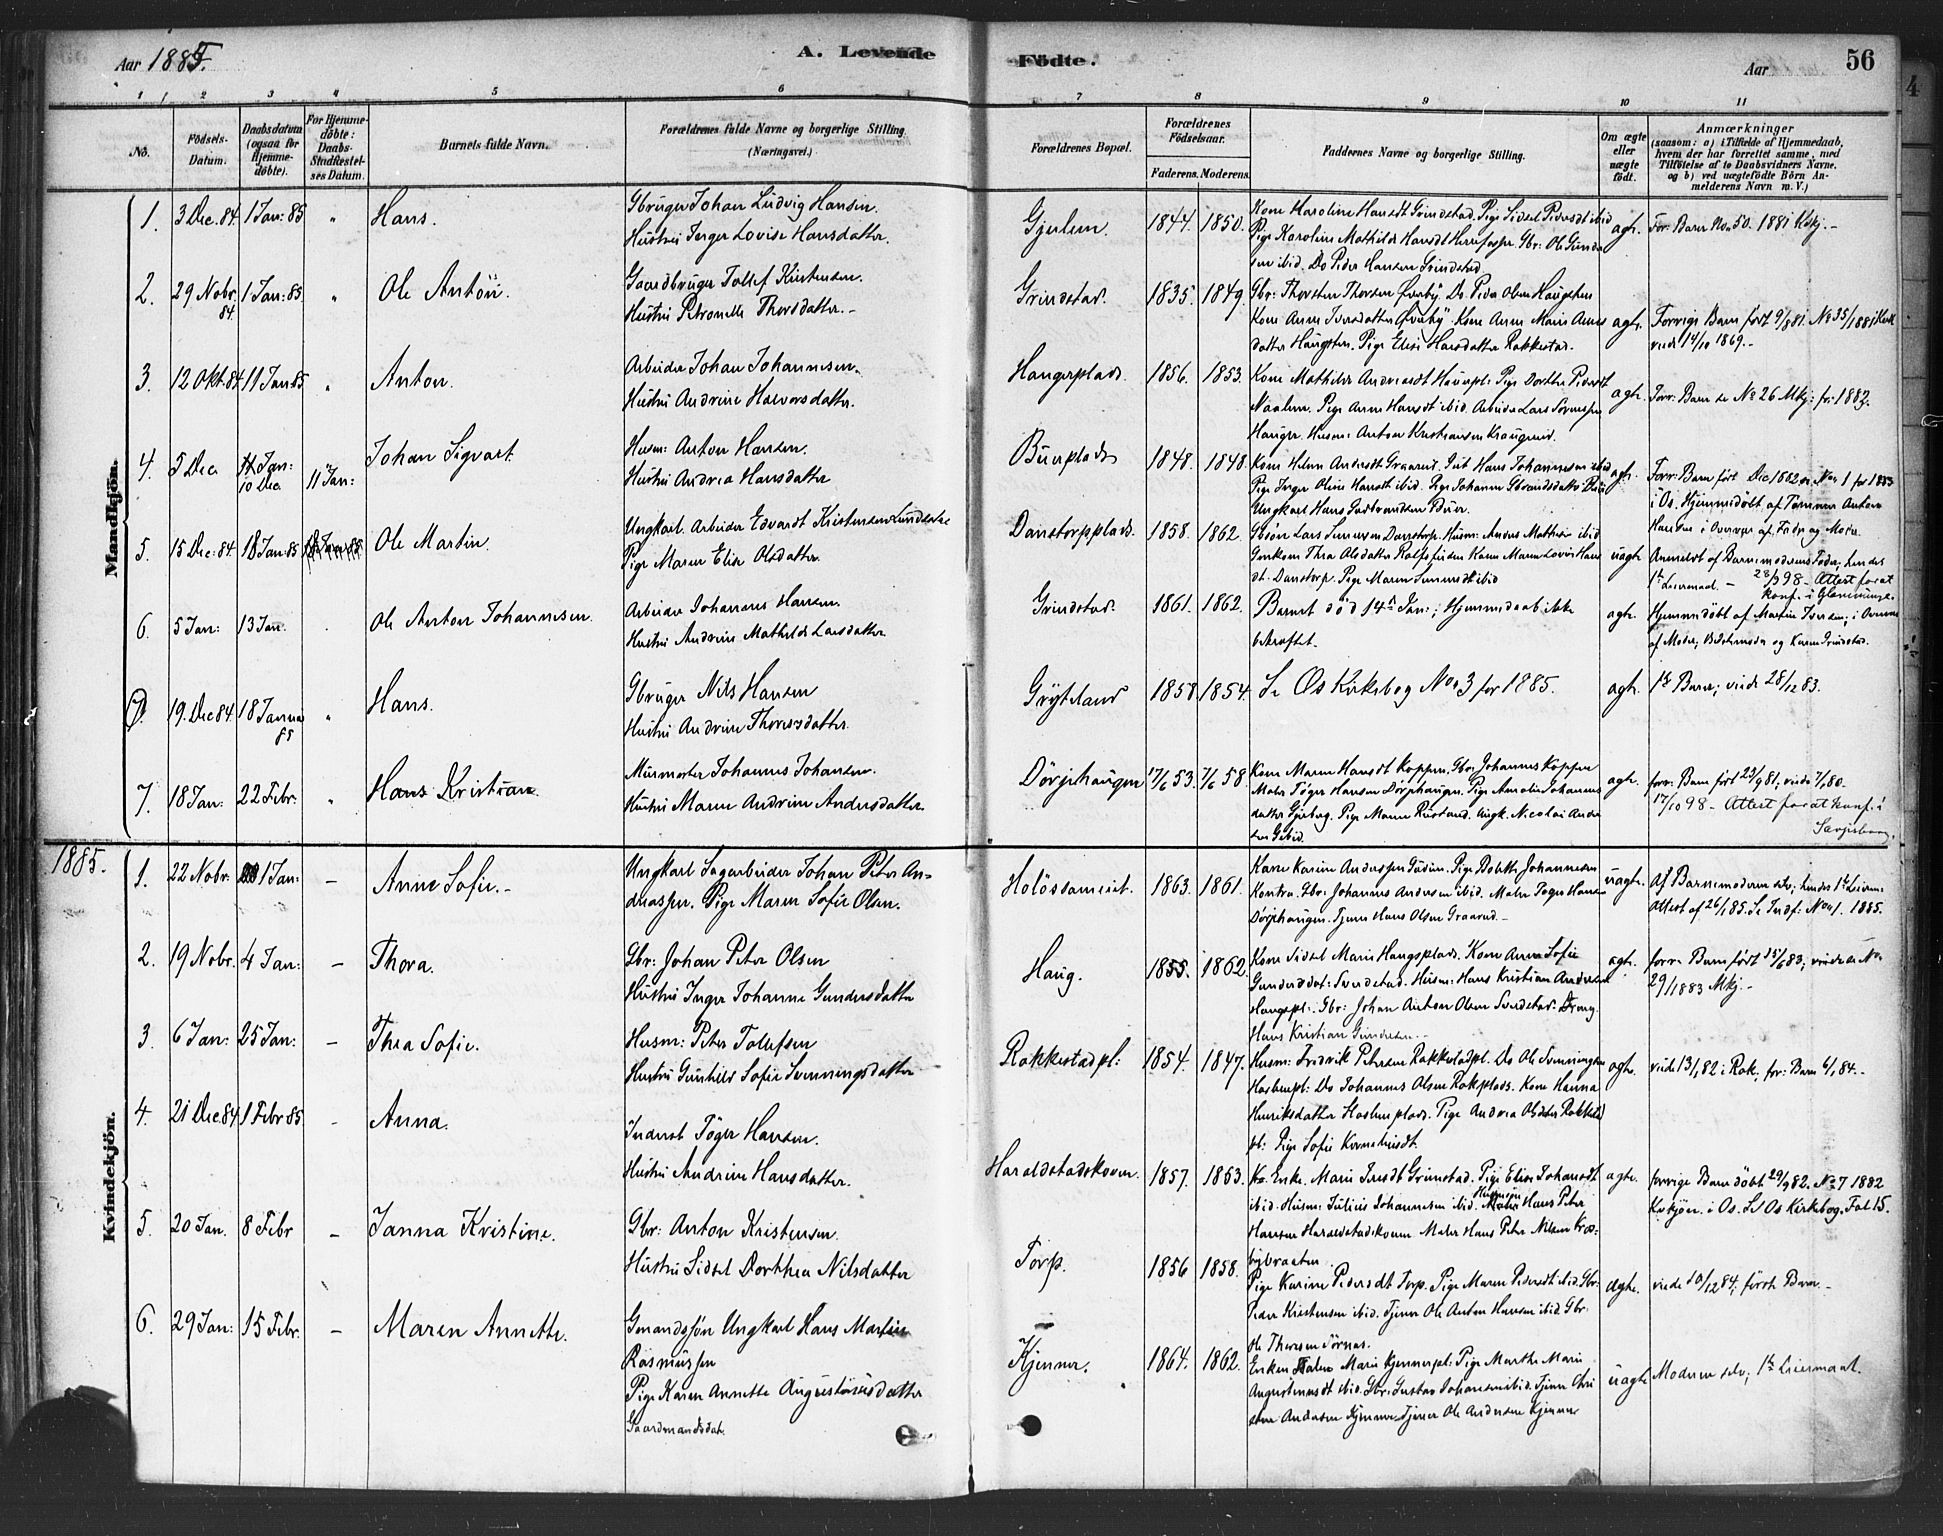 Aar 1885.
A. Levende Födte.
56
Aar
1 2 3 4 5 6 7 8 9 10 11
No.
Födsels-Datum.
Daabsdatum (ogsaa for Hjemmedöbte).
For Hjemmedöbte: Daabs-Stadfæstelses Datum.
Barnets fulde Navn.
Forældrenes fulde Navne og borgerlige Stilling. (Næringsvei.)
Forældrenes Bopæl.
Forældrenes Födselsaar.
Faderens. Moderens.
Faddernes Navne og borgerlige Stilling.
Om ægte eller uægte födt.
Anmærkninger
(saasom: a) i Tilfælde af Hjemmedaab, hvem der har forrettet samme, med Tilföielse af to Daabsvidners Navne, og b) ved uægtefödte Börn Anmelderens Navn m. V.)
Mandkjön.
1. 3 Dec. 84 1 Jan: 85 " Hans.
Gbruger Johan Ludvig Hansen.
Hustru Inger Lovise Hansdatter.
Gjulem. 1844. 1850.
Kone Karoline Hansdt Grindstad. Pige Sidsel Pedersdt ibid
Pige Karoline Mathilde Hansdt Herrefosse. Gbr: Ole Gunder
sen ibid. Do Peder Hansen Grindstad
ægte. For: Barn No. 50. 1881 Kbkj. -
2. 29 Nobr. 84. 1 Jan: 85 " Ole Anton.
Gaardbruger Tollef Kristensen.
Hustru Petronelle Thorsdatter. -
Grindstad. 1835. 1849.
Gbr: Thorsten Thorsen Øverby. Do. Peder Olsen Haugsten
Kone Anne Iversdatter Øverby. Kone Anne Marie Arnes
datter Haugsten. Pige Elise Hansdatter Rakkestad.
ægte. Forrige Barn født 9/8 81. No 35/1881 Kbkj
viede 14/10 1869. -
3. 12 Okt. 84 11 Jan 85 " Anton.
Arbeider Johan Johannesen.
Hustru Andrine Halvorsdatter.
Haugerplads. 1856. 1853.
Kone Mathilde Andreasdt Hauerpl: Pige Dorthe Pedersdt
Naalum. Pige Anne Hansdt ibid. Arbeider Lars Sörensen
Hauger. Husm: Anton Kristiansen
ægte. Forr: Barn se No 26 Mkj: for 1882.
4. 5 Dec 10 Dec. 11 Jan: Johan Sigvart
Husm: Anton Hansen.
Hustru Andrea Hansdatter
Buerplads 1848. 1848.
Kone Helene Andersdt Graarud. Hans Johannesen ibid
Pige Inger Oline Hansdt ibid. Pige Johanne
Ungkarl Hans Gulbrandsen Buer.
ægte. Forr: Barn født Dec 1882 se No 1 for 1883
i Os. Hjemmedøbt af Tømmer Anton
Hansen i Overvær af Fader og Moder
5. 15 Dec: 84 18 Jan: 85 Ole Martin.
Ungkarl Arbeider Edvardt Kristensen
Pige Maren Elise Olsdatter.
Danstorpplads. 1858. 1862.
Gbsön Lars Danstorp. Husm: Anders Mathisen ibid
Thea Olsdatter Kone Maren Lovise Hans
dt. Danstorp. Pige Maren ibid
uægte. Anmeldt af Barnemoderens Fader; hendes
1te Leiermaal - 28/3 98 - Attest for at
konf. i Glemminge.
6. 5 Jan: 13 Jan. . Ole Anton Johannesen.
Arbeider Johannes Hansen.
Hustru Andrine Mathilde Larsdatter
Grindstad. 1861. 1862.
Barnet död 14de Jan:; Hjemmedaab ikke
bekræftet.
ægte. Hjemmedöbt af Martin Iversen; i Overvær
af Moder, Bedstemoder og Karen Grindstad.
7. 19. Dec 84 18 Januar 85 " Hans.
Gbruger Nils Hansen
Hustru Andrine Thoresdatter.
Gryteland 1858 1854.
Se Os Kirkebog No 3 for 1885.
ægte. 1te Barn; viede 28/12 83.
7. 18 Jan: 22 Febr: " Hans Kristian.
Murmester Johannes Johansen.
Hustru Maren Andrine Andersdatter.
Dörjehaugen 17/6 53. 7/6 58.
Kone Maren Hansdt Koppen. Gbr: Johannes Koppen
Maler Töger Hansen Dörjehaugen. Pige Amalie Johannes
datter Gjeberg. Pige Maren Rustand. Ungk. Nicolai Andre
ægte. forr: Barn født 23/9 81, viede 7/1 80.
17/10 98 - Attest for at konf. i
Sarpsborg.
1885.
Kvindekjön.
1. 22 Nobr: 1 Jan: - Anne Sofie. -
Ungkarl Sagarbeider Johan Peter An-
dreassen. Pige Maren Sofie Olsen.
Holössameiet. 1863. 1861.
Karen Karine Anderssen Pige Bolette Johannesen
Kontra. Gbr: Johannes Andersen ibid. Maler Töger Hansen
Dörjehaugen. Tjener Hans Olsen Graarud -
uægte. Af Barnemoderen selv; hendes 1te Leierm:
Attest af 26/1 85. Se Indf: No 1. 1885.
2. 19 Nobr. 4 Jan: - Thora.
Gbr: Johan Peter Olsen
Hustru Inger Johanne Gundersdatter
Haug. 1855. 1862.
Kone Sidsel Marie Haugsplads. Kone Anne Sofie
Gundersdt: Sverdstad. Husm: Hans Kristian Andersen
Haugspl: Gbr: Johan Anton Olsen Sverdstad: Dreng
Hans Kristian Gundersen.
ægte. forr: Barn født 15/6 83; viede se No
29/1883 Mkj. -
3. 6 Jan: 25 Jan: - Thea Sofie.
Husm: Peter Tollefsen
Hustru Gunhild Sofie Svenningsdatter
Rakkestadpl: 1854. 1847.
Husm: Fredrik Petersen Rakkestadpl. Do Ole Svenningsen
Haslumpl: Do Johannes Olsen Rakplads. Kone Hanna
Henriksdatter Haslumplads. Pige Andrea Olsdatter Rakkestad
pl: Pige Sofie Korneliusdt.
ægte. viede 13/1 82 i Rak; for: Barn 6/1 84. -
4. 21 Dec 84 1 Febr 85 - Anna.
Inderst Töger Hansen.
Hustru Andrine Hansdatter.
Haraldstadskoven. 1857. 1863.
Enke Marie Iversdt Grimstad. Pige Elise Johansdt
ibid. Husm: Julius Johannesen ibid. Husmand Hans Peter
Hansen Haraldstadskoven. Maler Hans Peter Nilsen Kraa-
bybraaten.
ægte. forrige Barn døbt 29/9 82. No 7 1882
Kvkjön. i Os. Se Os Kirkebog. Fol 15.
5. 20 Jan. 8 Febr - Janna Kristine.
Gbr: Anton Kristensen.
Hustru Sidsel Dorthea Nilsdatter
Torp. 1856 1858.
Pige Karine Pedersdt Torp. Pige Maren Pedersdt ibid. Gbr:
Peder Kristensen ibid. Tjener Ole Anton Hansen ibid. Gbr.
Ole Thoresen Törnes.
ægte. viede 10/12 84; förste Barn -
6. 29 Jan: 15 Febr. - Maren Annette.
Gmandssøn Ungkarl Hans Martin
Rasmussen
Pige Karen Annette Augustinusdatter
Gaardmandsdat.
Kjenner. 1864. 1862.
Enken Malene Marie Kjennerpl: Pige Marthe Marie
Augustinusdt ibid. Gbr: Gustav Johansen ibid. Tjener Chri
stian Andersen Kjenner. Tjener Ole Andersen Kjenner
uægte Moderen selv; 1te Leiermaal.